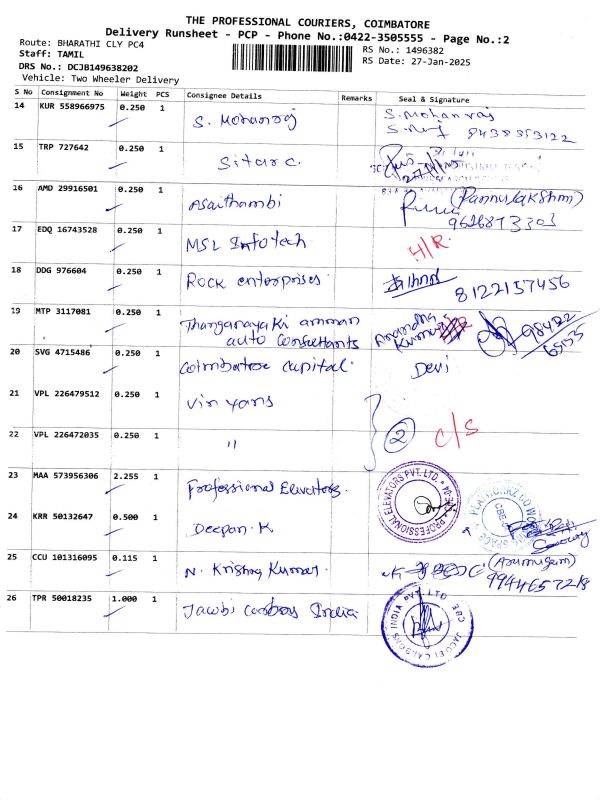 THE PROFESSIONAL COURIERS, COIMBATORE
Delivery Runsheet - PCP - Phone No.:0422-3505555 - Page No.:2
Route: BHARATHI CLY PC4
RS No.: 1496382
Staff: TAMIL
RS Date: 27-Jan-2025
DRS No.: DCJB149638202
Vehicle: Two Wheeler Delivery
S No Consignment No Weight PCS Consignee Details Remarks Seal & Signature
14 KUR 558966975 0.250 1 S. Mohanraj S. Mohanraj
8438353122
15 TRP 727642 0.250 1 Sitar c.
16 AMD 29916501 0.250 1 Asaithambi (Pannulakshmi)
9626873303
17 EDQ 16743528 0.250 1 MSL Infotech H/R.
18 DDG 976604 0.250 1 Rock enterprises 8122157456
19 MTP 3117081 0.250 1 Thanganayaki amman
auto Consultants
Anandha
Kumar
98422
20 SVG 4715486 0.250 1 Coimbatore Capital. Devi
21 VPL 226479512 0.250 1 Vin yans
② C/S
22 VPL 226472035 0.250 1 "
23 MAA 573956306 2.255 1 Professional Elevators.
PROFESSIONAL ELEVATORS PVT. LTD.
24 KRR 50132647 0.500 1 Deepan. K
25 CCU 101316095 0.115 1 N. Krishna Kumar (Arumugam)
9944657218
26 TPR 50018235 1.000 1 Jacobi carbons India.
JACOBI CARBONS INDIA PVT LTD CBE